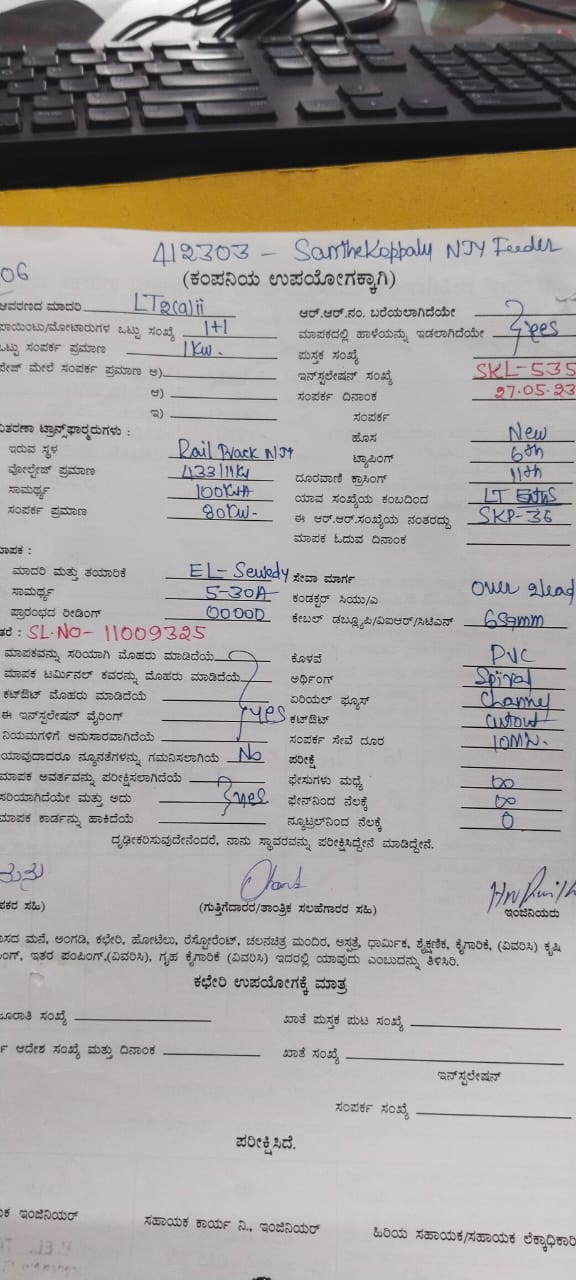 412303 - Santhekoppalu NJY Feeder
06
(ಕಂಪನಿಯ ಉಪಯೋಗಕ್ಕಾಗಿ)
ಆವರಣದ ಮಾದರಿ LT2(a)ii
ಆರ್.ಆರ್.ನಂ. ಬರೆಯಲಾಗಿದೆಯೇ
ಪಾಯಿಂಟು/ಮೋಟಾರುಗಳ ಒಟ್ಟು ಸಂಖ್ಯೆ 1+1
ಮಾಪಕದಲ್ಲಿ ಹಾಳೆಯನ್ನು ಇಡಲಾಗಿದೆಯೇ yes
ಒಟ್ಟು ಸಂಪರ್ಕ ಪ್ರಮಾಣ 1KW.
ಪುಸ್ತಕ ಸಂಖ್ಯೆ
ಪೇಜ್ ಮೇಲೆ ಸಂಪರ್ಕ ಪ್ರಮಾಣ ಅ)
ಇನ್‌ಸ್ಟಲೇಷನ್ ಸಂಖ್ಯೆ SKL-535
ಆ)
ಸಂಪರ್ಕ ದಿನಾಂಕ 27.05.23
ಇ)
ಸಂಪರ್ಕ
ವಿತರಣಾ ಟ್ರಾನ್ಸ್‌ಫಾರ್ಮರುಗಳು :
ಹೊಸ New
ಇರುವ ಸ್ಥಳ Rail Track NJY
ಟ್ಯಾಪಿಂಗ್ 6th
ವೋಲ್ಟೇಜ್ ಪ್ರಮಾಣ 433/11KV
ದೂರವಾಣಿ ಕ್ರಾಸಿಂಗ್ 11th
ಸಾಮರ್ಥ್ಯ 100KVA
ಯಾವ ಸಂಖ್ಯೆಯ ಕಂಬದಿಂದ LT
ಸಂಪರ್ಕ ಪ್ರಮಾಣ 80KW.
ಈ ಆರ್.ಆರ್.ಸಂಖ್ಯೆಯ ನಂತರದ್ದು SKP-36
ಮಾಪಕ ಓದುವ ದಿನಾಂಕ
ಮಾಪಕ :
ಮಾದರಿ ಮತ್ತು ತಯಾರಿಕೆ EL-Sewedy
ಸೇವಾ ಮಾರ್ಗ
ಸಾಮರ್ಥ್ಯ 5-30A
ಕಂಡಕ್ಟರ್ ಸಿಯು/ಎ Over 2lead
ಪ್ರಾರಂಭದ ರೀಡಿಂಗ್ 00000
ಕೇಬಲ್ ಡಬ್ಲ್ಯೂಪಿ/ವಿಐಆರ್/ಸಿಟಿಎಸ್ 6sqmm
ತರೆ : SL.NO- 11009325
ಮಾಪಕವನ್ನು ಸರಿಯಾಗಿ ಮೊಹರು ಮಾಡಿದೆಯೆ
ಕೊಳವೆ PVC
ಮಾಪಕ ಟರ್ಮಿನಲ್ ಕವರನ್ನು ಮೊಹರು ಮಾಡಿದೆಯೆ
ಅರ್ಥಿಂಗ್ Spiral
ಕಟ್‌ಔಟ್ ಮೊಹರು ಮಾಡಿದೆಯೆ
ಏರಿಯಲ್ ಫ್ಯೂಸ್ Channel
ಈ ಇನ್‌ಸ್ಟಲೇಷನ್ ವೈರಿಂಗ್ yes
ಕಟ್‌ಔಟ್ Cutout
ನಿಯಮಗಳಿಗೆ ಅನುಸಾರವಾಗಿದೆಯೆ
ಸಂಪರ್ಕ ಸೇವೆ ದೂರ
ಯಾವುದಾದರೂ ನ್ಯೂನತೆಗಳನ್ನು ಗಮನಿಸಲಾಗಿಯೆ No
ಪರೀಕ್ಷೆ
ಮಾಪಕ ಆವರ್ತವನ್ನು ಪರೀಕ್ಷಿಸಲಾಗಿದೆಯೆ
ಫೇಸುಗಳು ಮಧ್ಯೆ ∞
ಸರಿಯಾಗಿದೆಯೇ ಮತ್ತು ಅದು yes
ಫೇನ್‌ನಿಂದ ನೆಲಕ್ಕೆ ∞
ಮಾಪಕ ಕಾರ್ಡನ್ನು ಹಾಕಿದೆಯೆ
ನ್ಯೂಟ್ರಲ್‌ನಿಂದ ನೆಲಕ್ಕೆ 0
ದೃಢೀಕರಿಸುವುದೇನೆಂದರೆ, ನಾನು ಸ್ಥಾವರವನ್ನು ಪರೀಕ್ಷಿಸಿದ್ದೇನೆ ಮಾಡಿದ್ದೇನೆ.
ಹಕರ ಸಹಿ)
(ಗುತ್ತಿಗೆದಾರರ/ತಾಂತ್ರಿಕ ಸಲಹೆಗಾರರ ಸಹಿ)
ಇಂಜಿನಿಯರು
ಾಸದ ಮನೆ, ಅಂಗಡಿ, ಕಛೇರಿ, ಹೋಟೆಲು, ರೆಸ್ಟೋರೆಂಟ್, ಚಲನಚಿತ್ರ ಮಂದಿರ, ಆಸ್ಪತ್ರೆ, ಧಾರ್ಮಿಕ, ಶೈಕ್ಷಣಿಕ, ಕೈಗಾರಿಕೆ, (ವಿವರಿಸಿ) ಕೃಷಿ
ಂಗ್, ಇತರ ಪಂಪಿಂಗ್.(ವಿವರಿಸಿ), ಗೃಹ ಕೈಗಾರಿಕೆ (ವಿವರಿಸಿ) ಇದರಲ್ಲಿ ಯಾವುದು ಎಂಬುದನ್ನು ತಿಳಿಸಿರಿ.
ಕಛೇರಿ ಉಪಯೋಗಕ್ಕೆ ಮಾತ್ರ
ಜೂರಾತಿ ಸಂಖ್ಯೆ
ಖಾತೆ ಪುಸ್ತಕ ಪುಟ ಸಂಖ್ಯೆ
ರ್ ಆದೇಶ ಸಂಖ್ಯೆ ಮತ್ತು ದಿನಾಂಕ
ಖಾತೆ ಸಂಖ್ಯೆ
ಇನ್‌ಸ್ಟಲೇಷನ್
ಸಂಪರ್ಕ ಸಂಖ್ಯೆ
ಪರೀಕ್ಷಿಸಿದೆ.
ಕ ಇಂಜಿನಿಯರ್
ಸಹಾಯಕ ಕಾರ್ಯ ನಿ., ಇಂಜಿನಿಯರ್
ಹಿರಿಯ ಸಹಾಯಕ/ಸಹಾಯಕ ಲೆಕ್ಕಾಧಿಕಾರಿ